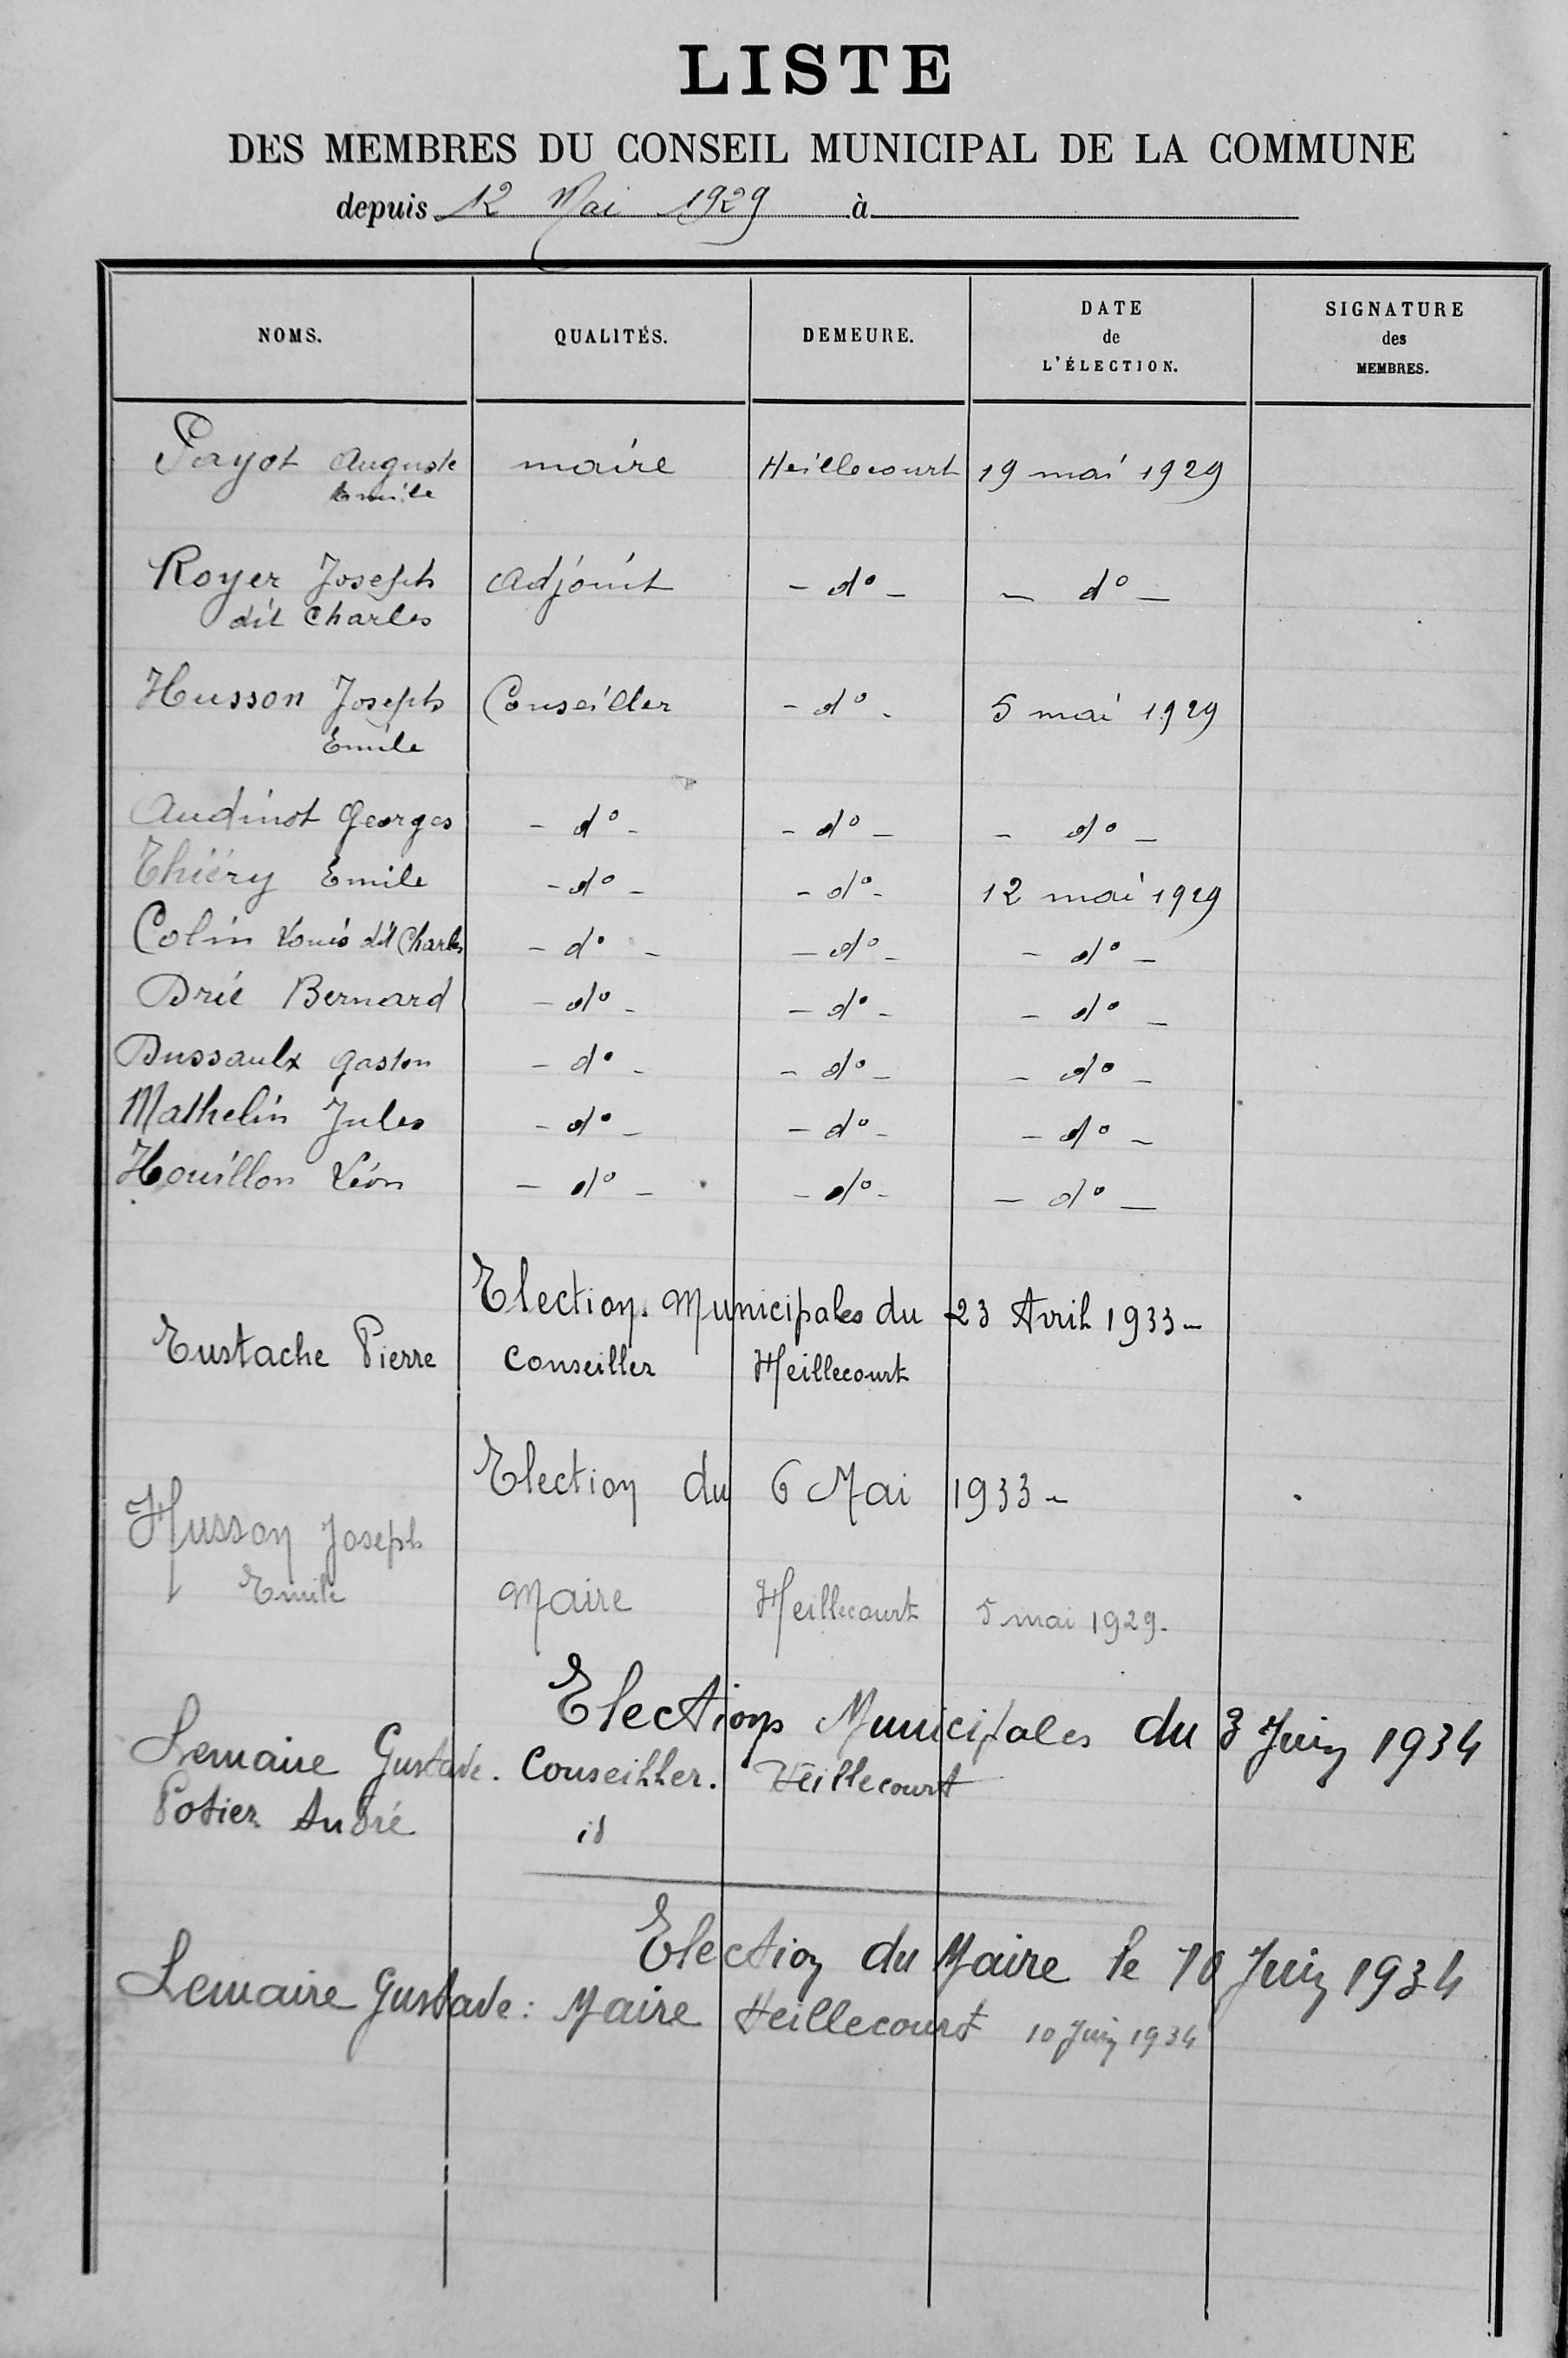 LISTE
DES MEMBRES DU CONSEIL MUNICIPAL DE LA COMMUNE
depuis 12 Mai 1929 à
NOMS. QUALITÉS. DEMEURE. DATE de L'ÉLECTION. SIGNATURE des MEMBRES.
Payot Auguste maire Heillecourt 19 mai 1929
Emile
Royer Joseph Adjoint - d° - - d° -
dit Charles
Husson Joseph Conseiller - d° - 5 mai 1929
Emile
Audinot Georges - d° - - d° - - d° -
Thiéry Emile - d° - - d° - 12 mai 1929
Colin Louis dit Charles - d° - - d° - - d° -
Drié Bernard - d° - - d° - - d° -
Dussaulx Gaston - d° - - d° - - d° -
Mathelin Jules - d° - - d° - - d° -
Houillon Léon - d° - - d° - - d° -
Election. Municipales du 23 Avril 1933 -
Eustache Pierre Conseiller Heillecourt
Election du 6 Mai 1933 -
Husson Joseph
Emile Maire Heillecourt 5 mai 1929.
Elections Municipales du 3 Juin 1934
Lemaire Gustave. Conseiller. Heillecourt
Potier André id
Election du Maire le 10 Juin 1934
Lemaire Gustave : Maire Heillecourt 10 Juin 1934